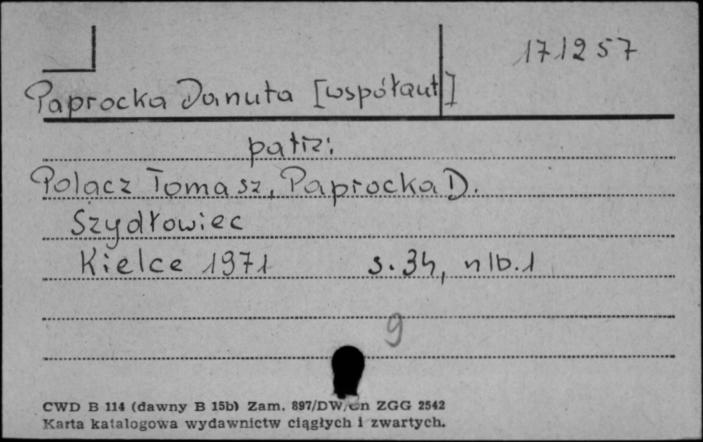 171257
Paprocka Danuta [współaut]
patrz:
Połącz Tomasz, Paprocka D.
Szydłowiec
Kielce 1971 s. 34, nlb. 1
9
CWD B 114 (dawny B 15b) Zam. 897/DW/Cn ZGG 2542
Karta katalogowa wydawnictw ciągłych i zwartych.